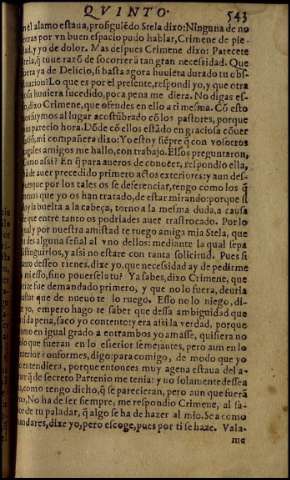 QVINTO. 543
en el alamo estaua, prosiguiẽdo Stela dixo: Ninguna de no
otras por vn buen espacio pudo hablar, Crimene de pie-
dad, y yo de dolor. Mas despues Crimene dixo: Parecete
Stela, q̃ tuue razõ de socorrer à tan gran necessidad. Que
fuera ya de Delicio, si hasta agora huuiera durado tu obs-
tinacion? Lo que es por el presente, respondi yo, y que otra
cosa huuiera sucedido, poca pena me diera. No digas es-
so, dixo Crimene, que ofendes en ello a ti mesma. Cõ esto
nos fuymos al lugar acostũbrado cõ los pastores, porque
nos parecio hora. Dõde cõ ellos estãdo en graciosa cõuer
sacion, mi compañera dixo: Yo estoy siẽpre q̃ con vosotros
quales amigos me hallo, con trabajo. Ellos preguntaron,
como assi? En q̃ para aueros de conocer, respondio ella,
ha de auer precedido primero actos exteriores: y aun des-
pues que por los tales os se deferenciar, tengo como los q̃
menos que yo os han tratado, de estar mirando: porque si
doy la buelta a la cabeça, torno a la mesma duda, a causa
de que entre tanto os podriades auer trastrocado. Por lo
qual y por nuestra amistad te ruego amiga mia Stela, que
des alguna señal al vno dellos: mediante la qual sepa
distinguirlos, y assi no estare con tanta solicitud. Pues si
tanto desseo tienes, dixe yo, que necessidad ay de pedirme
a mi esso, sino ponerselo tu? Ya sabes, dixo Crimene, que
este fue demandado primero, y que no lo fuera, deuria
bastar que de nueuo te lo ruego. Esso no lo niego, di-
xe yo, empero hago te saber que dessa ambiguidad que
te da pena, saco yo contento: y era assi la verdad, porque
como en igual grado a entrambos yo amasse, quisiera no
solo que fueran en lo esterior semejantes, pero aun en lo
interior conformes, digo para comigo, de modo que yo
entendiera, porque entonces muy agena estaua del a-
mor q̃ de secreto Partenio me tenia: y no solamente dessea
ua, como tengo dicho, q̃ se parecieran, pero aun que fuera
vno. No ha de ser siempre, me respondio Crimene, al sa-
bor de tu paladar, q̃ algo se ha de hazer al mio. Sea como
mandares, dixe yo, pero escoge, pues por ti se haze. Vala-
me